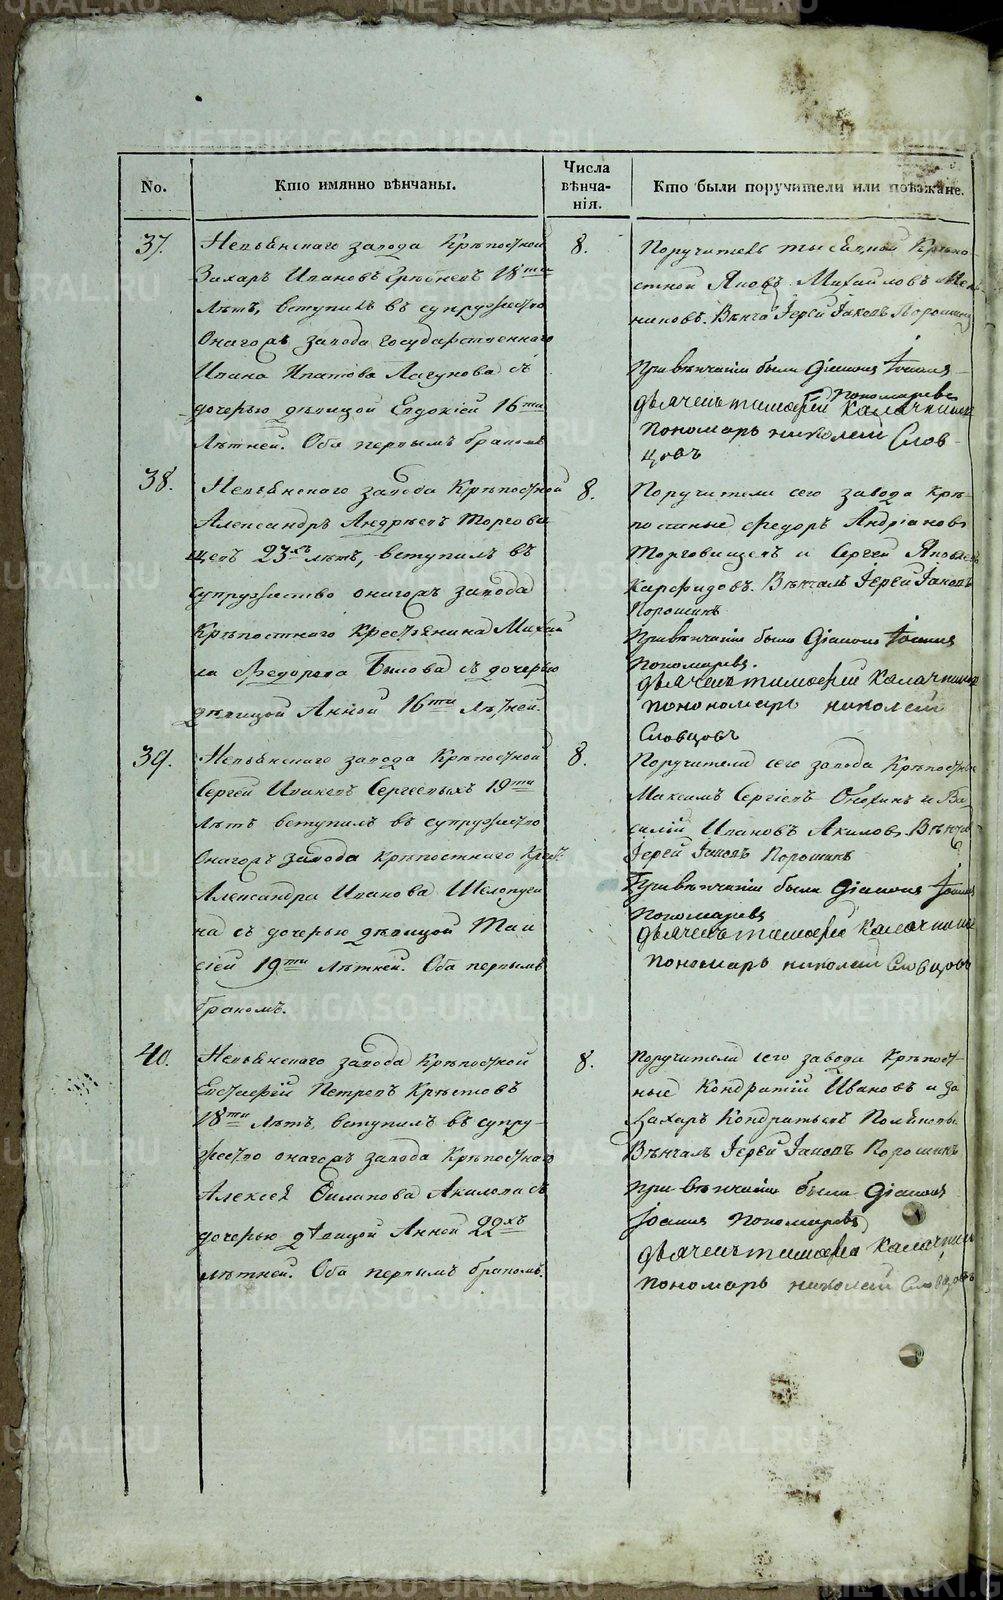 No.
Кто имянно вѣнчаны.
Числа
вѣнча-
нія.
Кто были поручители или поѣзжане.
37.
Невьянскаго завода Крѣпостной
Захаръ Ивановъ 18ти
лѣтъ, вступилъ въ супружество
онагожъ завода государственнаго
Ивана Ипатова Лагунова съ
дочерью дѣвицой Евдокіей 16ти
лѣтней. Оба первымъ бракомъ
8.
Поручители тысяцкой Крѣпо-
стной Яковъ Михайловъ
никовъ. Вѣнча Іерей Іаковъ Порошинъ
При вѣнчаніи были Діаконъ Іоаннъ
Пономаревъ
дьячекъ тимофей Калачник
пономарь николай Слов-
цовъ
38.
Невьянскаго завода Крѣпостной
Александръ Андрѣевъ Торгови
щевъ 23хъ лѣтъ, вступилъ въ
супружество онагожъ завода
Крѣпостнаго Крестьянина Михаи
ла Федорова Былова съ дочерью
дѣвицой Анной 16ти лѣтней.
8.
Поручители сего завода крѣ-
постные Федоръ Андріановъ
Торговищевъ и Сергей Яковлевъ
Карфидовъ. Вѣнчалъ Іерей Іаковъ
Порошинъ
При вѣнчаніи были Діаконъ Іоаннъ
Пономаревъ.
дьячекъ тимофей Калачник
понономарь николай
Словцовъ
39.
Невьянскаго завода Крѣпостной
Сергей Ивановъ Сергеевыхъ 19ти
лѣтъ вступилъ въ супружество
онагожъ завода крѣпостнаго Крест.
Александра Иванова Шелопуги
на съ дочерью дѣвицой Таи
сіей 19ти лѣтней. Оба первымъ
бракомъ.
8.
Поручители сего завода Крѣпостные
Максимъ Сергіевъ и Ва
силій Ивановъ Акиловъ Вѣнчалъ
Іерей Іаковъ Порошинъ
При вѣнчаніи были Діаконъ Іоаннъ
Пономаревъ
дьячекъ тимофей Калачник
пономарь николай Словцовъ
40.
Невьянскаго завода Крѣпостной
Евстафей Петровъ
18ти лѣтъ, вступилъ въ супру-
жество онагожъ завода Крѣпостнаго
Алексея Акилова съ
дочерью дѣвицой Анной 22хъ
лѣтней. Оба первымъ бракомъ.
8.
Поручители сего завода Крѣпост-
ные Кондратій Ивановъ и За
Захаръ Кондратьевъ Поляковы
Вѣнчалъ Іерей Іаковъ Порошинъ
При вѣнчаніи были Діаконъ
Іоаннъ Пономаревъ
дьячекъ тимофей Калачник
пономарь николай Словцовъ
METRIKI.GASO-URAL.RU